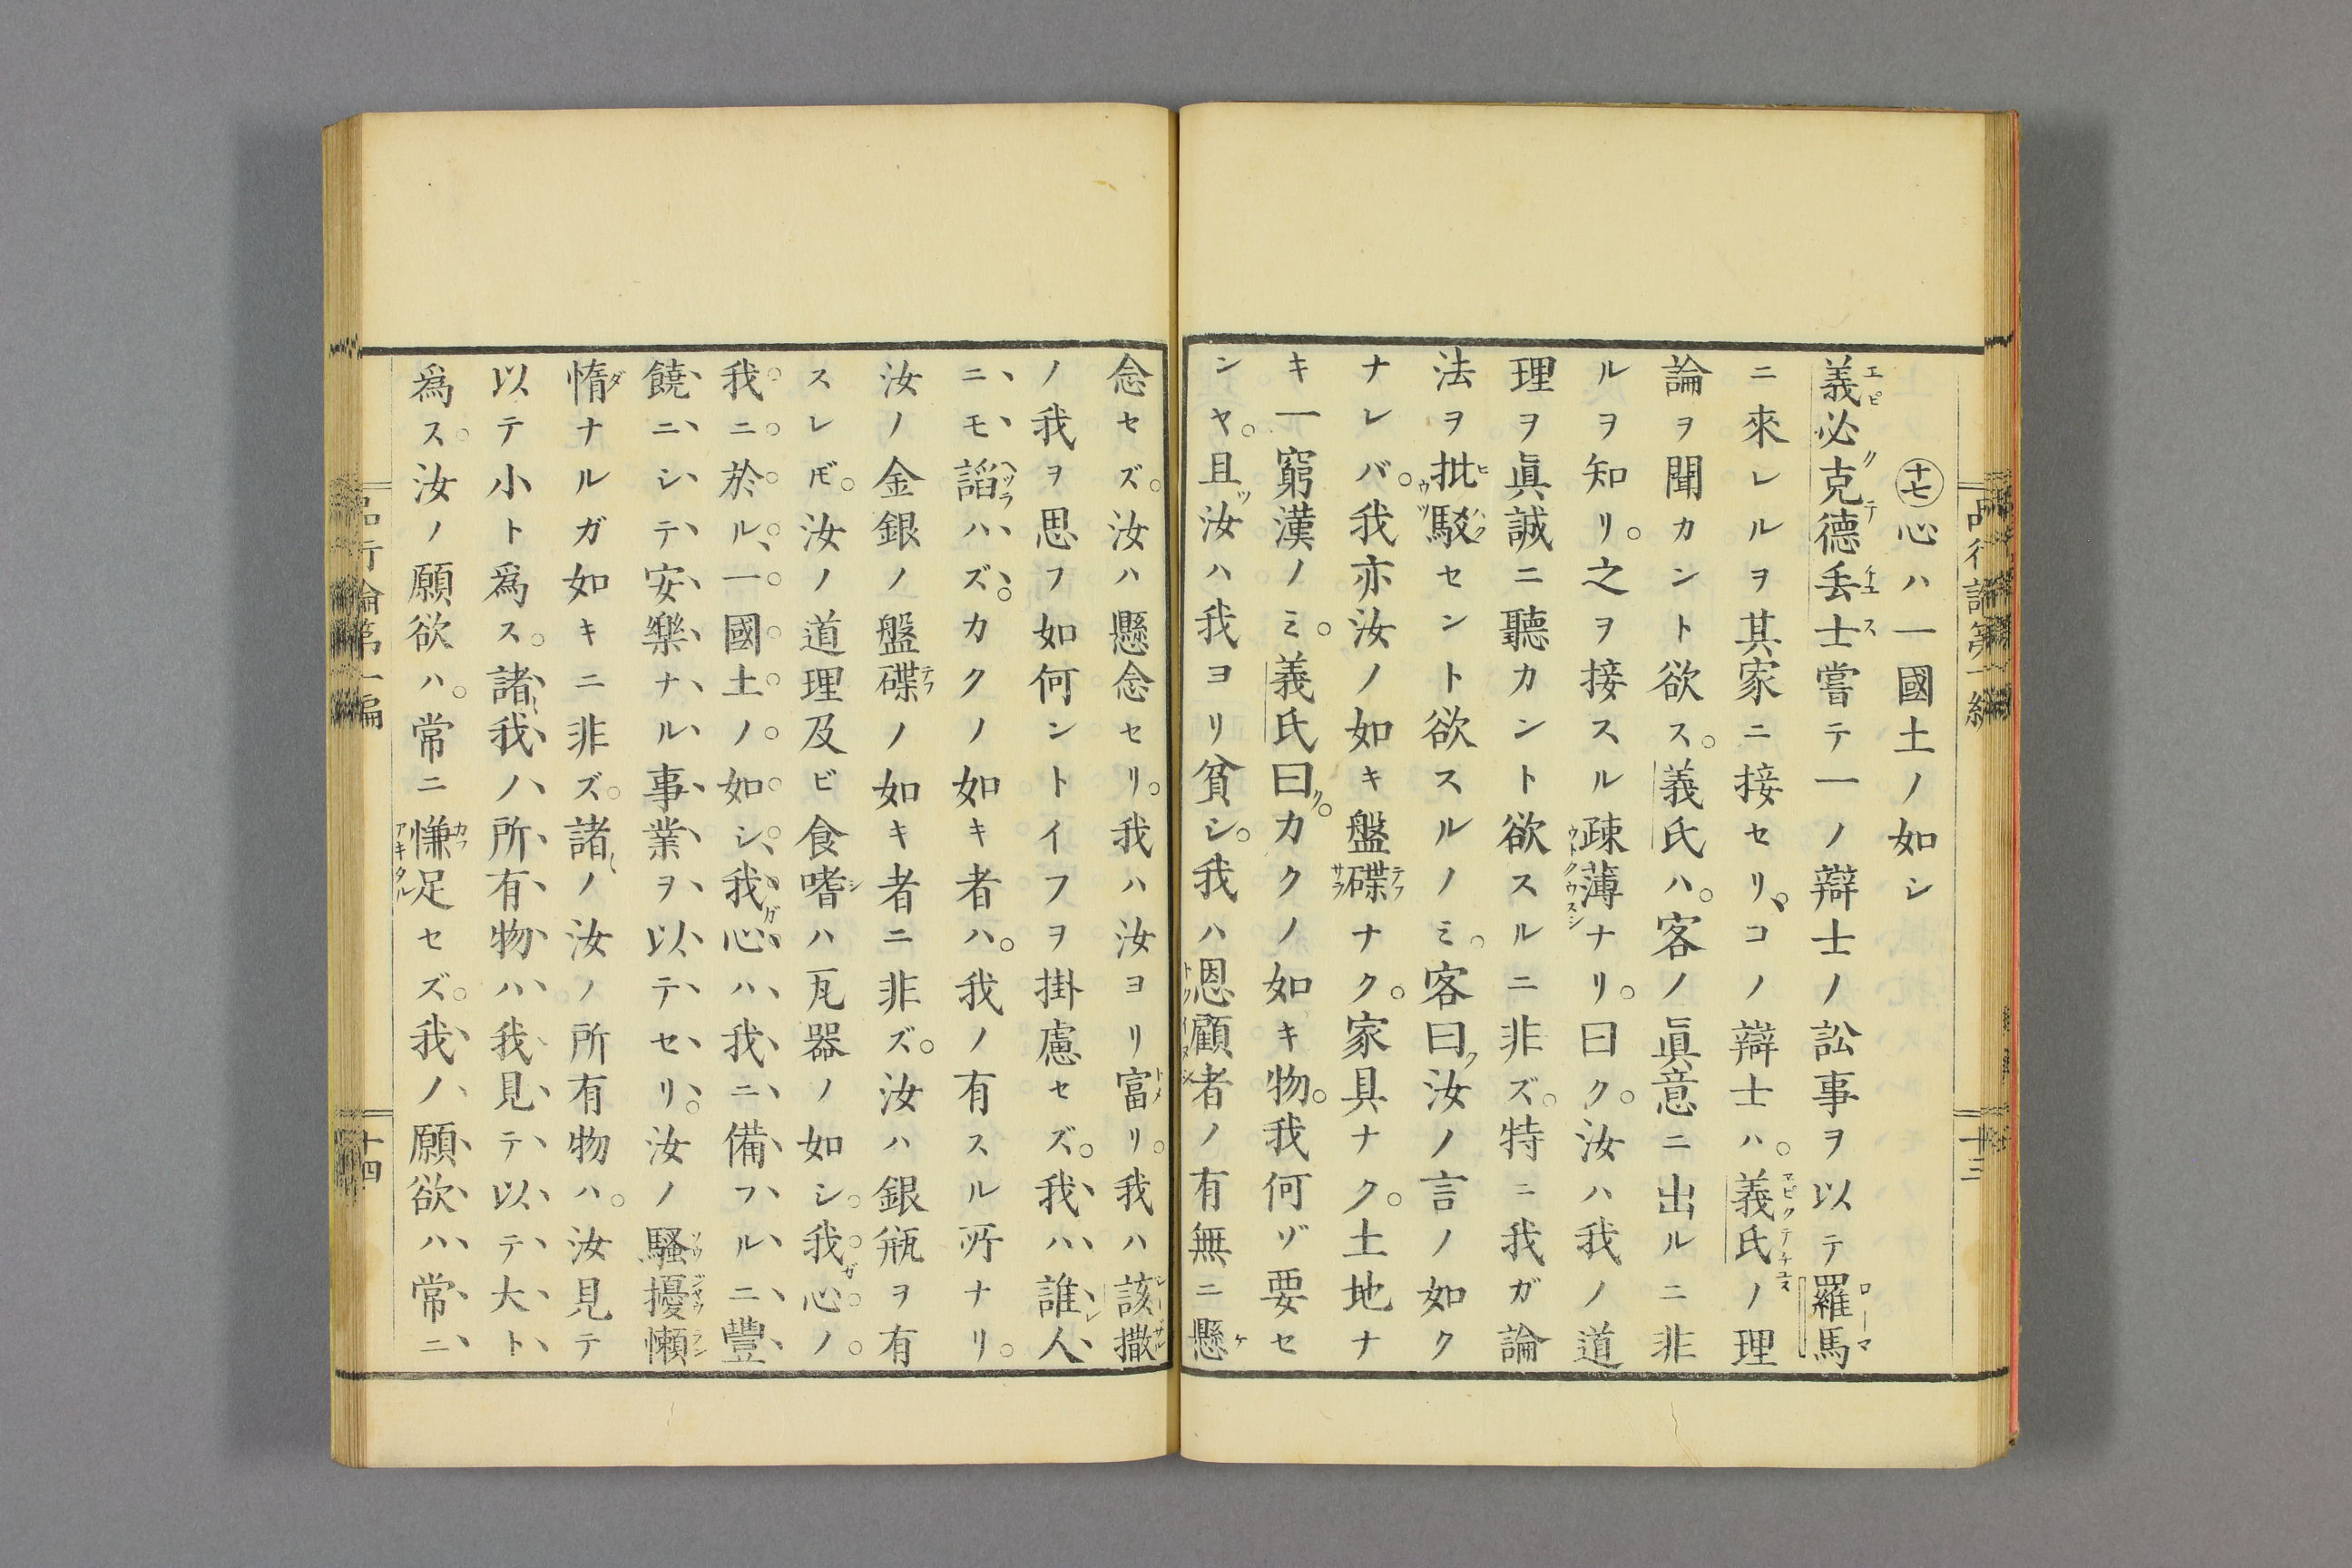 十七心ハ一國土ノ如シ
義必克德丢士嘗テ一ノ辯士ノ訟事ヲ以テ羅馬
ニ來レルヲ其家ニ接セリ。コノ辯士ハ。義氏ノ理
論ヲ聞カント欲ス。義氏ハ。客ノ眞意ニ出ルニ非
ルヲ知リ。之ヲ接スル疎薄ナリ。曰ク。汝ハ我ノ道
理ヲ眞誠ニ聽カント欲スルニ非ズ。特ニ我ガ論
法ヲ批駁セント欲スルノミ。客曰ク汝ノ言ノ如ク
ナレバ。我亦汝ノ如キ盤碟ナク。家具ナク。土地ナ
キ一窮漢ノミ。義氏曰ク。カクノ如キ物。我何ゾ要セ
ンヤ。且ツ汝ハ我ヨリ貧シ。我ハ恩顧者ノ有無ニ懸
念セズ。汝ハ懸念セリ。我ハ汝ヨリ富リ。我ハ該撒
ノ我ヲ思フ如何ントイフヲ掛慮セズ。我ハ誰人
ニモ諂ハズ。カクノ如キ者ハ。我ノ有スル所ナリ。
汝ノ金銀ノ盤碟ノ如キ者ニ非ズ。汝ハ銀瓶ヲ有
スレㇹ゙。汝ノ道理及ビ食嗜ハ瓦器ノ如シ。我ガ心ノ
我ニ於ル。一國土ノ如シ。我ガ心ハ我ニ備フルニ豐
饒ニシテ安樂ナル事業ヲ以テセリ。汝ノ騷擾懶
惰ナルガ如キニ非ズ。諸ノ汝ノ所有物ハ。汝見テ
以テ小ト爲ス。諸我ノ所有物ハ我見テ以テ大ト
爲ス。汝ノ願欲ハ。常ニ慊足セズ。我ノ願欲ハ常ニ
品行論第一編
十三
十四